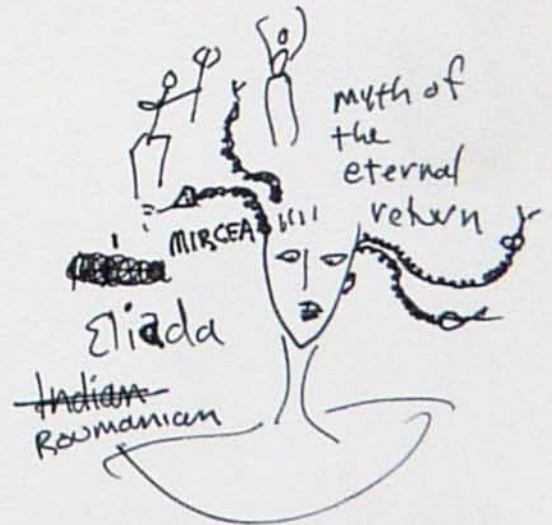 myth of
the
eternal
return
MIRCEA
Eliada
Indian
Roumanian